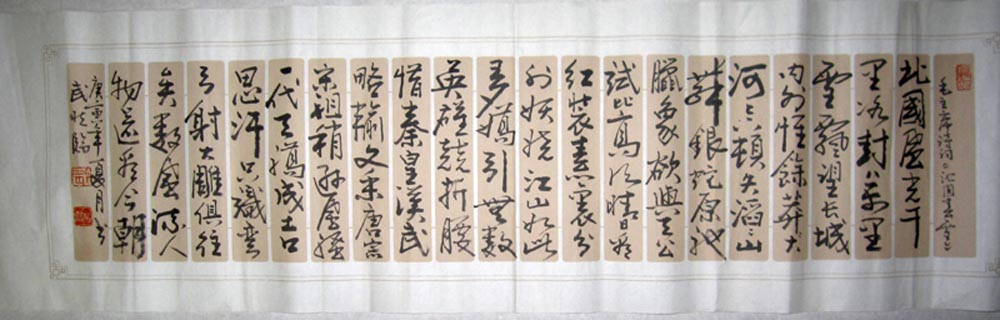 毛主席詩詞沁園春雪
北國風光千
里冰封萬里
雪飄望長城
内外惟餘莽〻大
河上下頓失滔〻山
舞銀蛇原馳
臘象欲與天公
試比高須晴日看
紅裝素裹分
外妖嬈江山如此
多嬌引無數
英雄競折腰
惜秦皇漢武
略輸文采唐宗
宋祖稍遜風騷
一代天驕成吉
思汗只識彎
弓射大雕俱往
矣數風流人
物還看今朝
庚寅年夏月